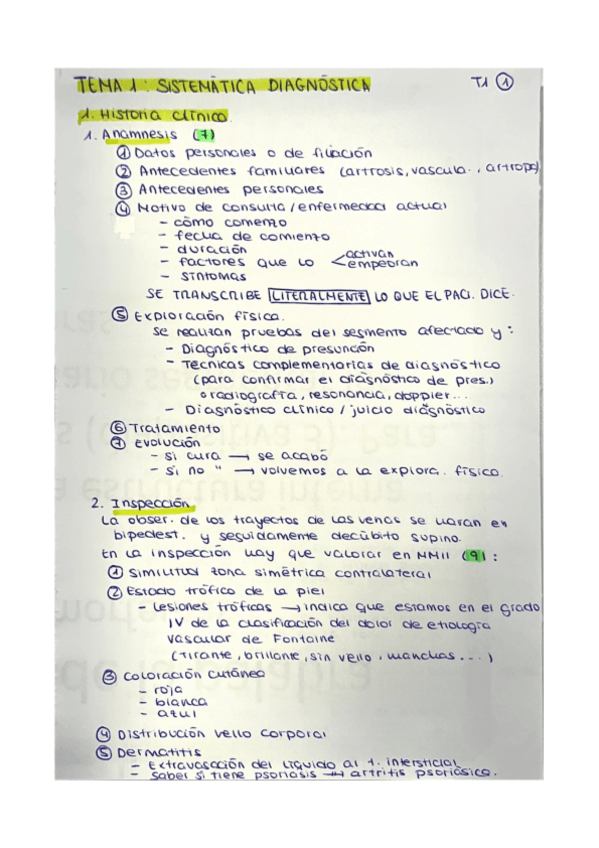 TEMA 1: SISTEMÁTICA DIAGNÓSTICA T1 ①
1. Historia clínica.
1. Anamnesis (7)
① Datos personales o de filiación
② Antecedentes familiares (artrosis, vascula., artrop)
③ Antecedentes personales
④ Motivo de consulta / enfermedad actual
- cómo comenzo
- fecha de comienzo
- duración
- factores que lo < activan
empeoran
- síntomas
SE TRANSCRIBE LITERALMENTE LO QUE EL PACI. DICE.
⑤ Exploración física.
Se realizan pruebas del segmento afectado y:
- Diagnóstico de presunción
- Técnicas complementarias de diagnóstico
(para confirmar el diagnóstico de pres.)
o radiografía, resonancia, doppler...
- Diagnóstico clínico / juicio diagnóstico
⑥ Tratamiento
⑦ Evolución
- si cura → se acabó
- si no " → volvemos a la explora. física.
2. Inspección
La obser. de los trayectos de las venas se harán en
bipedest. y seguidamente decúbito supino.
En la inspección hay que valorar en MMII (9):
① Similitud zona simétrica contralateral
② Estado trófico de la piel
- Lesiones tróficas → indica que estamos en el grado
IV de la clasificación del dolor de etiología
vascular de Fontaine
(Tirante, brillante, sin vello, manchas...)
③ Coloración cutánea
- roja
- blanca
- azul
④ Distribución vello corporal
⑤ Dermatitis
- Extravasación del líquido al t. intersticial
- Saber si tiene psoriasis → artritis psoriásica.